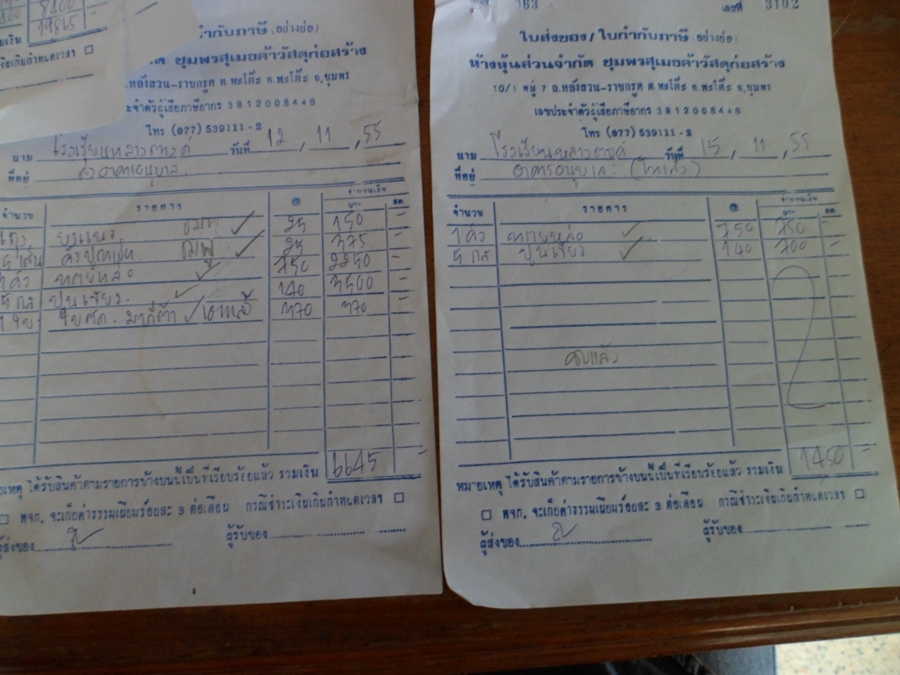 8400
19865
กำกับภาษี (อย่างย่อ)
ด ชุมพรสุเมธค้าวัสดุก่อสร้าง
ถ.หลังสวน-ราชกรูด ต.พะโต๊ะ อ.พะโต๊ะ จ.ชุมพร
ประจำตัวผู้เสียภาษีอากร 3812008448
โทร (077) 539111-2
นาม วันที่ 12 , 11 , 55
ที่อยู่
จำนวน รายการ @ จำนวนเงิน
บาท สต.
25 150 -
25 375 -
ทรายหล่อ 750 2250 -
ปูนเขียว 140 3500 -
ใบตัด 370 370 -
6645 -
หมายเหตุ ได้รับสินค้าตามรายการข้างบนนี้เป็นที่เรียบร้อยแล้ว รวมเงิน
หจก. จะเก็บค่าธรรมเนียมร้อยละ 3 ต่อเดือน กรณีชำระเงินเกินกำหนดเวลา
ผู้ส่งของ ผู้รับของ
163 เลขที่ 3102
ใบส่งของ/ใบกำกับภาษี (อย่างย่อ)
ห้างหุ้นส่วนจำกัด ชุมพรสุเมธค้าวัสดุก่อสร้าง
10/1 หมู่ 7 ถ.หลังสวน-ราชกรูด ต.พะโต๊ะ อ.พะโต๊ะ จ.ชุมพร
เลขประจำตัวผู้เสียภาษีอากร 3812008448
โทร (077) 539111-2
นาม วันที่ 15 , 11 , 55
ที่อยู่ อาคารอนุบาล
จำนวน รายการ @ จำนวนเงิน
บาท สต.
1 คิว ทรายหล่อ 750 750 -
5 กส ปูนเขียว 140 700 -
ครบแล้ว
1450 -
หมายเหตุ ได้รับสินค้าตามรายการข้างบนนี้เป็นที่เรียบร้อยแล้ว รวมเงิน
หจก. จะเก็บค่าธรรมเนียมร้อยละ 3 ต่อเดือน กรณีชำระเงินเกินกำหนดเวลา
ผู้ส่งของ ผู้รับของ